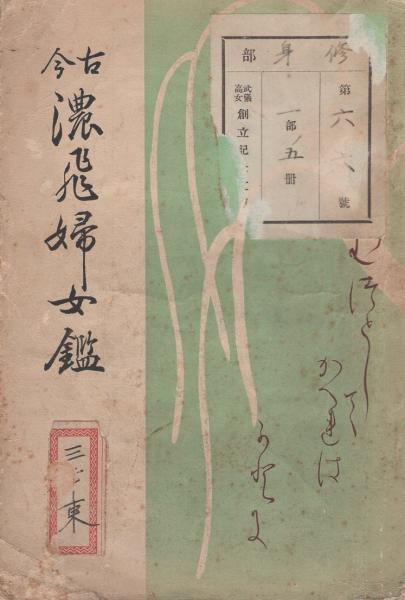 古今
濃飛婦女鑑
三ノ東
修身部
第六六號
一部ノ五冊
武儀高女
創立記
かへれは